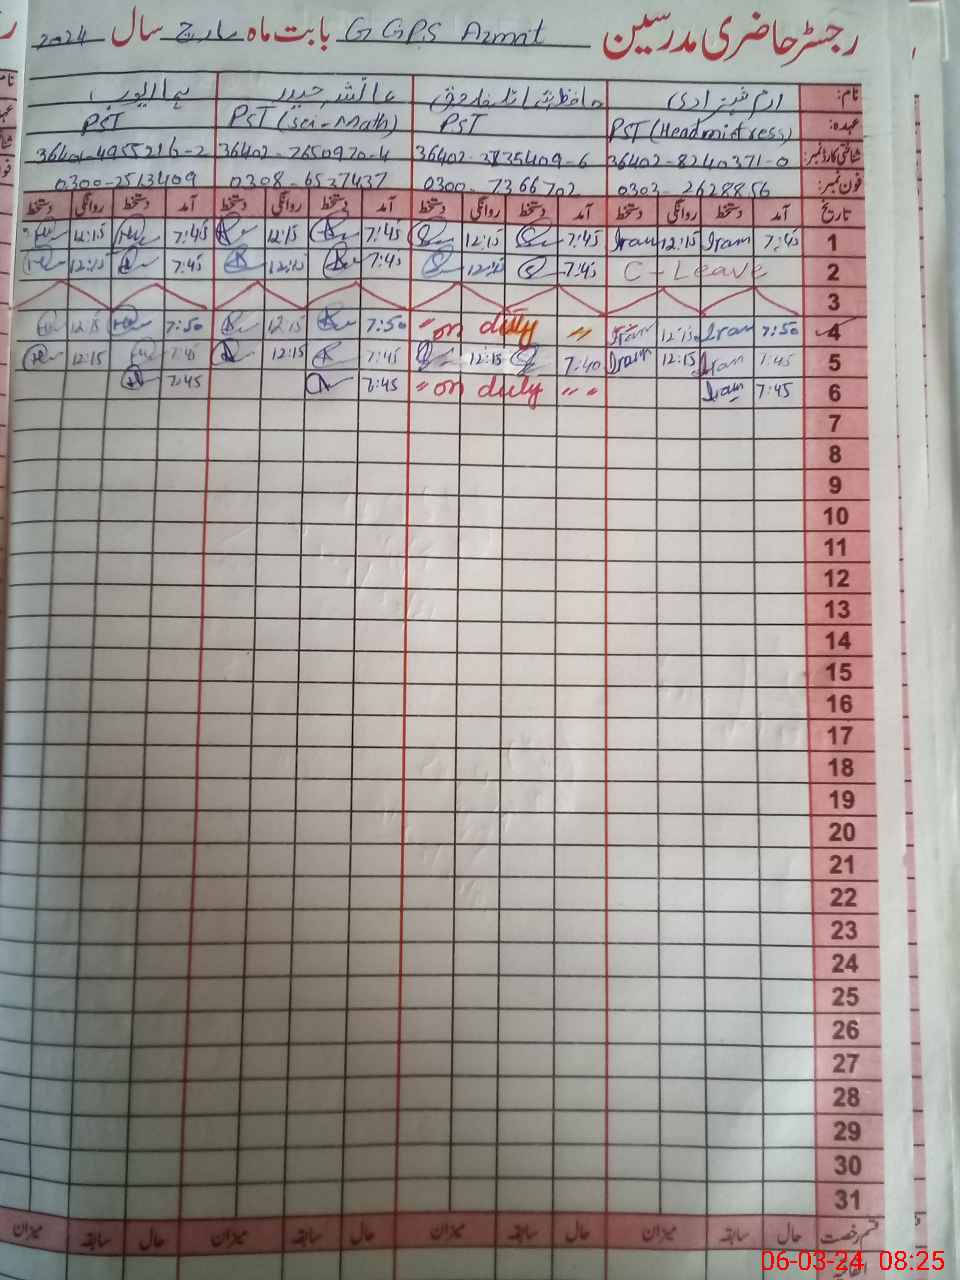 رجسٹر حاضری مدرسین G GPS Azmat بابت ماہ مارچ سال 2024
نام: ارم شہزادی عائشہ حیدر
عہدہ: PST (Headmistress) PST PST (Sci-Math) PST
شناختی کارڈ نمبر: 36402-8240371-0 36402-7650970-4 36401-4955216-2
فون نمبر: 0303-2628856 0300-7366702 0308-6537437 0300-2513409
تاریخ آمد دستخط روانگی دستخط آمد دستخط روانگی دستخط آمد دستخط روانگی دستخط آمد دستخط روانگی دستخط
1 7:45 Iram 12:15 Iram 7:45 12:15 7:45 12:15 7:45 12:15
2 C-Leave 7:45 12:15 7:45 12:15 7:45 12:15
3
4 7:50 Iram 12:15 Iram " on duty " 7:50 12:15 7:50 12:15
5 7:45 Iram 12:15 Iram 7:40 12:15 7:45 12:15 7:45 12:15
6 7:45 Iram " on duty " " 7:45 7:45
7
8
9
10
11
12
13
14
15
16
17
18
19
20
21
22
23
24
25
26
27
28
29
30
31
قسم رخصت حال سابقہ میزان حال سابقہ میزان حال سابقہ میزان حال سابقہ میزان
اتفاقیہ
06-03-24 08:25